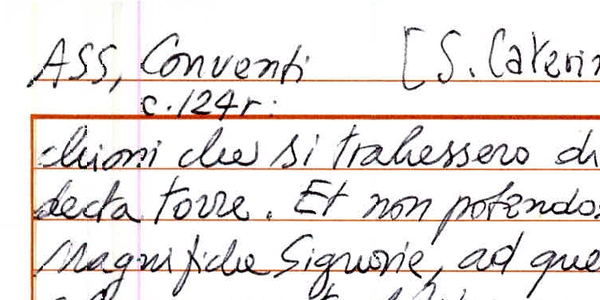 ASS, Conventi [S. Caterin
c. 124r:
chioni che si trahessero di
decta torre. Et non potendo
Magnifiche Signorie, ad que